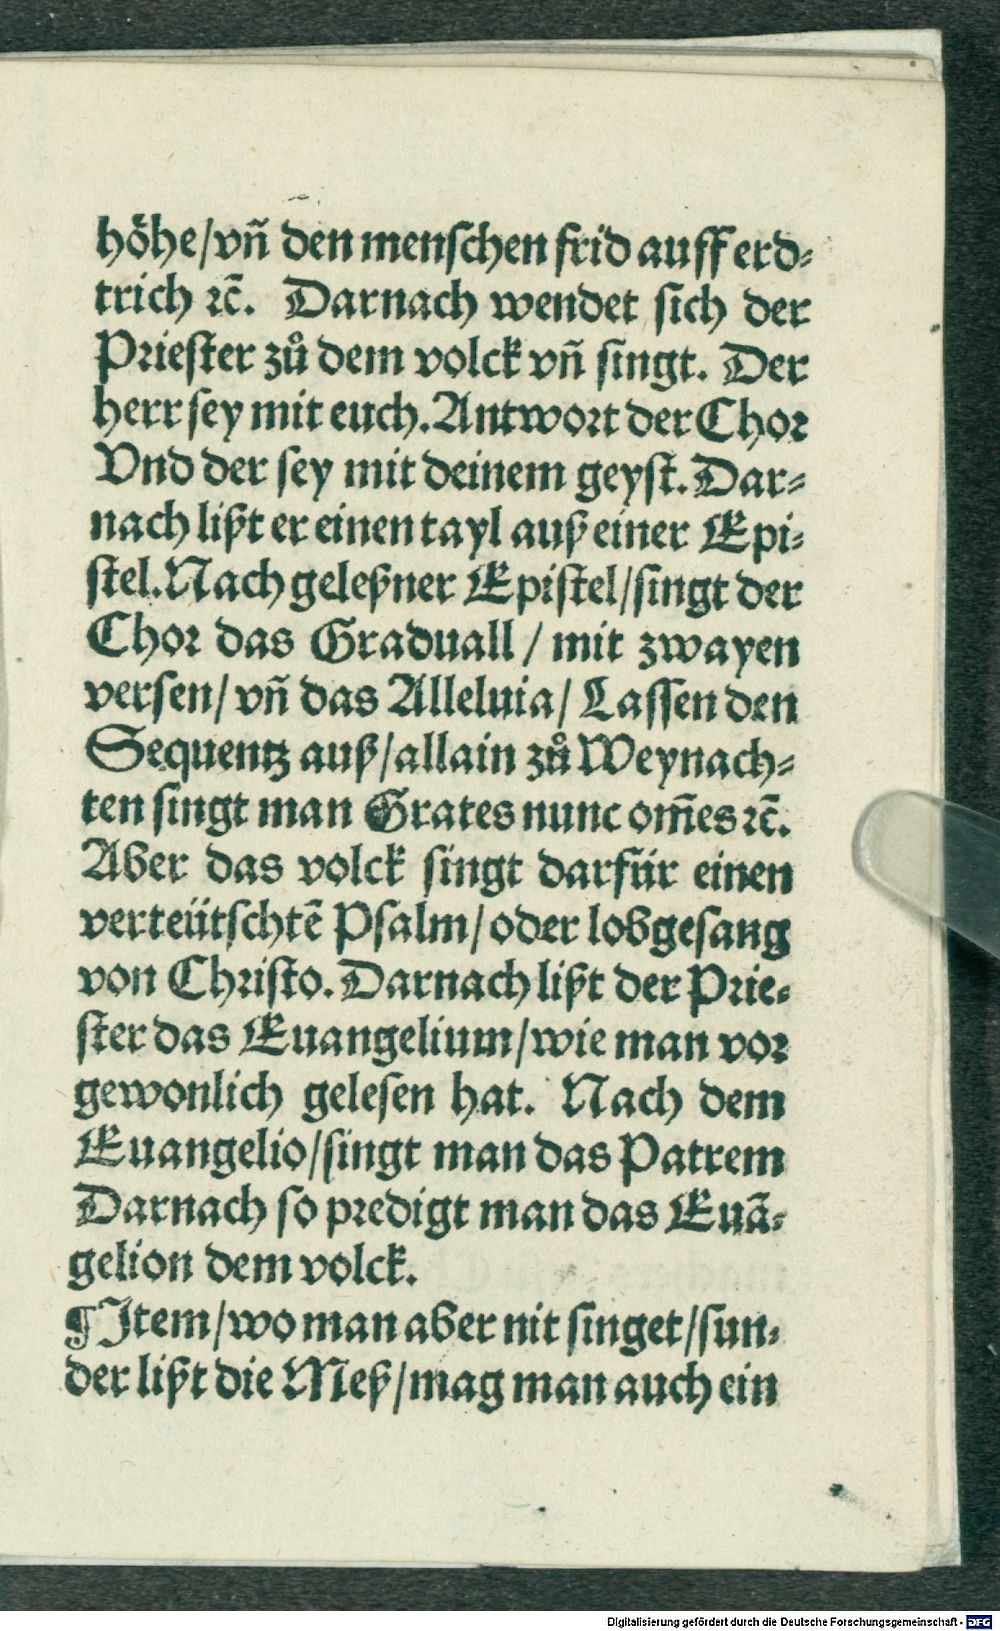 höhe/vñ den menschen frid auff erd⸗
trich ꝛc̄. Darnach wendet sich der
Priester zů dem volck vñ singt. Der
herr sey mit euch. Antwort der Chor
Vnd der sey mit deinem geyst. Dar⸗
nach lißt er einen tayl auß einer Epi⸗
stel. Nach geleßner Epistel/singt der
Chor das Graduall / mit zwayen
versen/ vñ das Alleluia/ Lassen den
Sequentz auß/allain zů Weynach⸗
ten singt man Grates nunc om̄es ꝛc̄.
Aber das volck singt darfür einen
verteütschtē Psalm/oder lobgesang
von Christo. Darnach lißt der Prie⸗
ster das Euangelium/wie man vor
gewonlich gelesen hat. Nach dem
Euangelio/singt man das Patrem
Darnach so predigt man das Euā⸗
gelion dem volck.
¶Item/wo man aber nit singet/sun⸗
der lißt die Meß/mag man auch ein
Digitalisierung gefördert durch die Deutsche Forschungsgemeinschaft - DFG